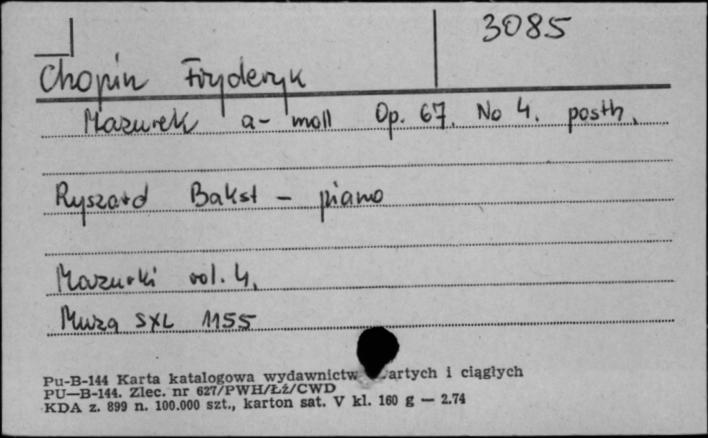 3085
Chopin Fryderyk
Mazurek a-moll Op. 67. No 4. posth.
Ryszard Bakst - piano
Mazurki vol. 4.
Muza SXL 1155
Pu-B-144 Karta katalogowa wydawnictw artych i ciągłych
PU—B-144. Zlec. nr 627/PWH/Łż/CWD
KDA z. 899 n. 100.000 szt., karton sat. V kl. 160 g — 2.74